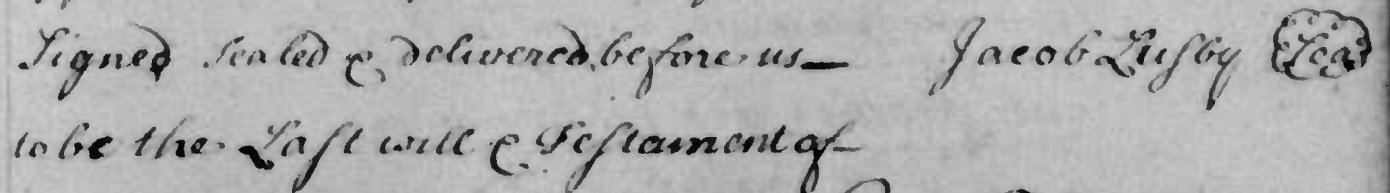 Signed sealed & delivered before us — Jacob Lusby Seal
to be the Last will & Testament of —